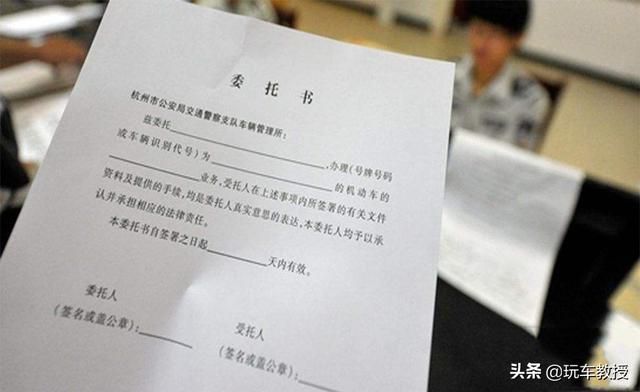 委托书
杭州市公安局交通警察支队车辆管理所：
兹委托____________________,办理(号牌号码
或车辆识别代号)为____________________的机动车的
____________________业务,受托人在上述事项内所签署的有关文件
资料及提供的手续,均是委托人真实意思的表达,本委托人均予以承
认并承担相应的法律责任。
本委托书自签署之日起__________天内有效。
委托人
(签名或盖公章):________
受托人
(签名或盖公章):________
头条 @玩车教授